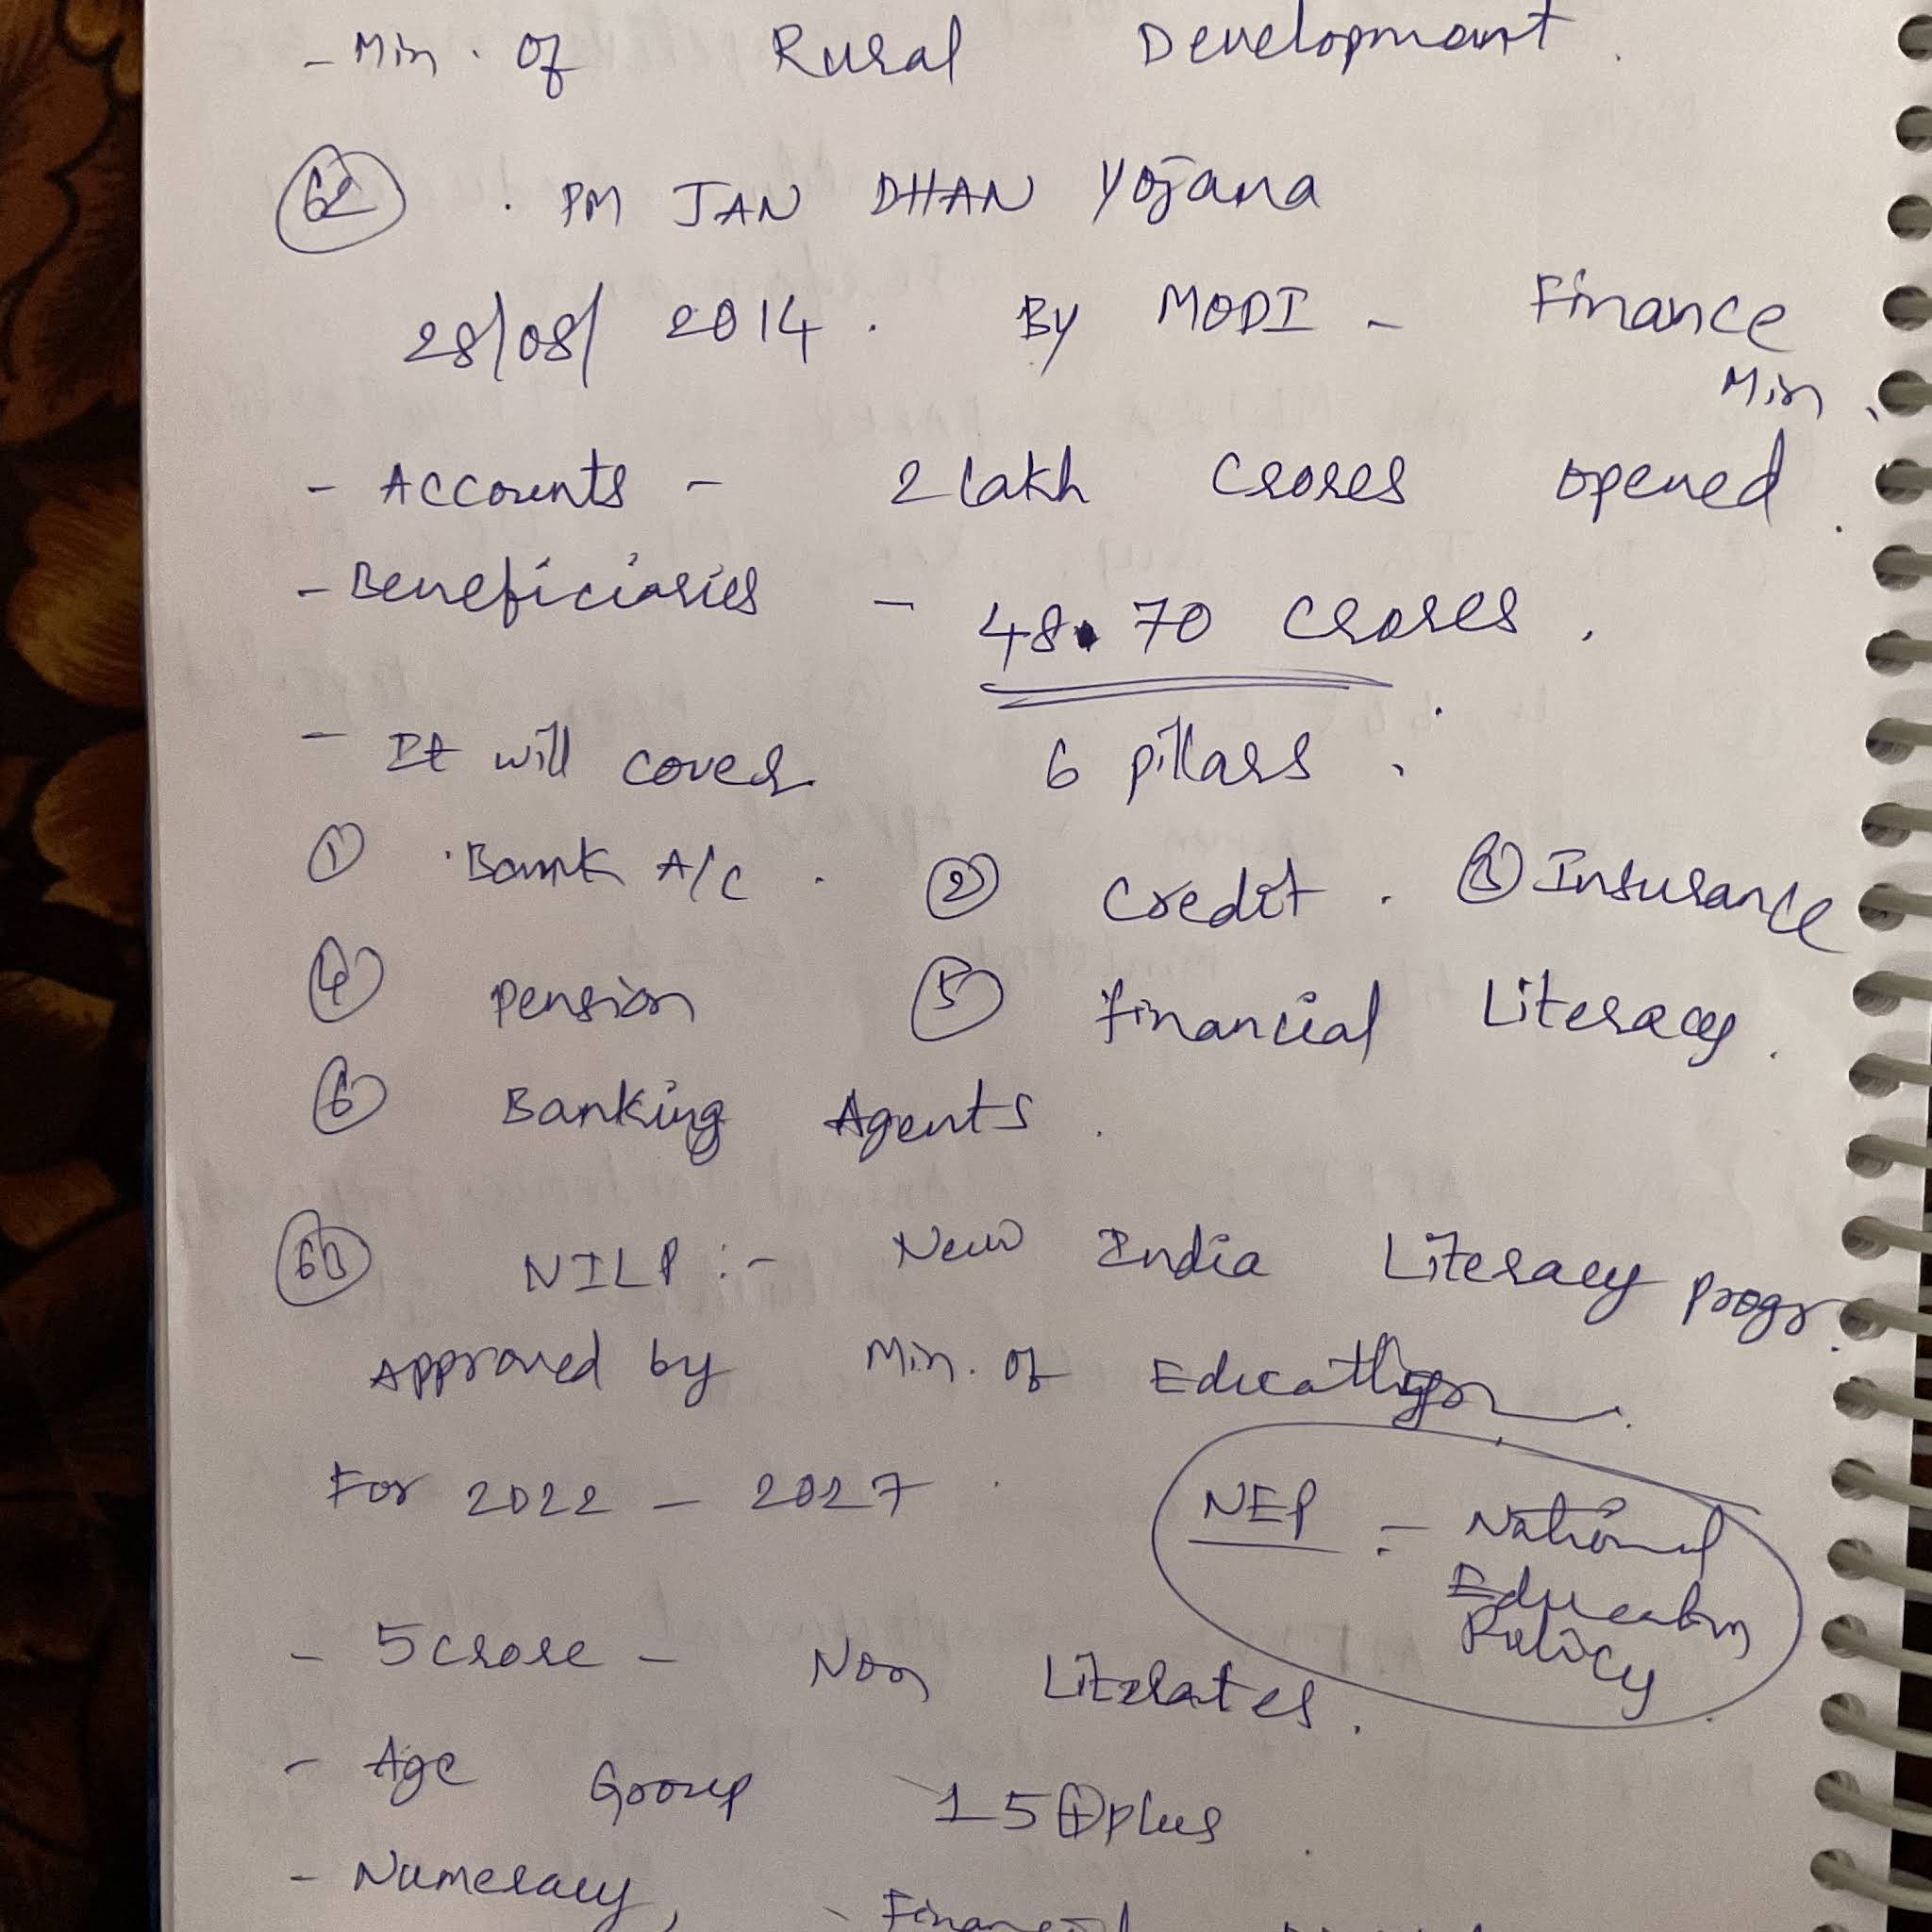 - Min. of Rural Development.
62 . PM JAN DHAN Yojana
28/08/ 2014. By MODI - Finance
Min.
- Accounts - 2 lakh Crores opened.
- Beneficiaries - 48.70 Crores.
- It will cover 6 pillars.
① Bank A/C. ② Credit. ③ Insurance
④ Pension ⑤ Financial Literacy.
⑥ Banking Agents.
63 NILP :- New India Literacy Progr.
Approved by Min. of Education.
For 2022 - 2027.
NEP :- National
Education
Policy
- 5 Crore - Non Literates.
- Age Group 15 ⊕ plus.
- Numeracy, - Financial